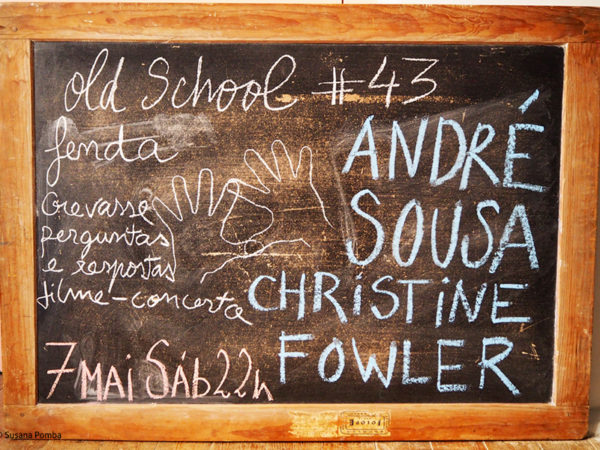 old School #43
fenda
Crevasse
perguntas
e respostas
filme-concerto
ANDRÉ
SOUSA
CHRISTINE
FOWLER
7 MAI SÁb 22h
© Susana Pomba